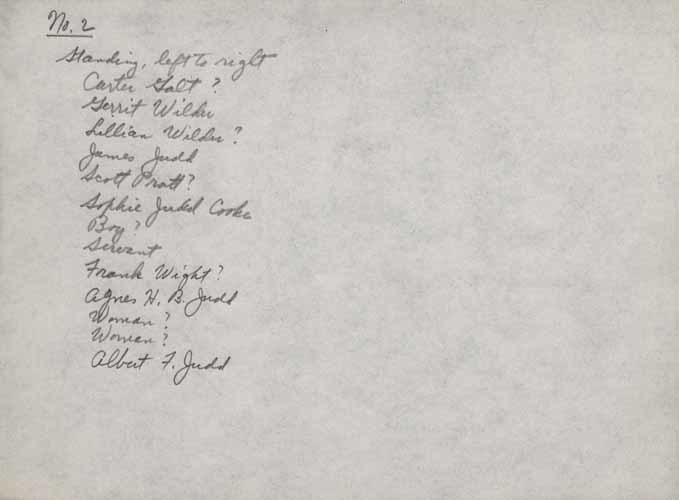 No. 2
Standing, left to right
Carter Galt?
Gerrit Wilder
Lillian Wilder?
James Judd
Scott Pratt?
Sophie Judd Cooke
Boy?
Servant
Frank Wight?
Agnes H. B. Judd
Woman?
Woman?
Albert F. Judd